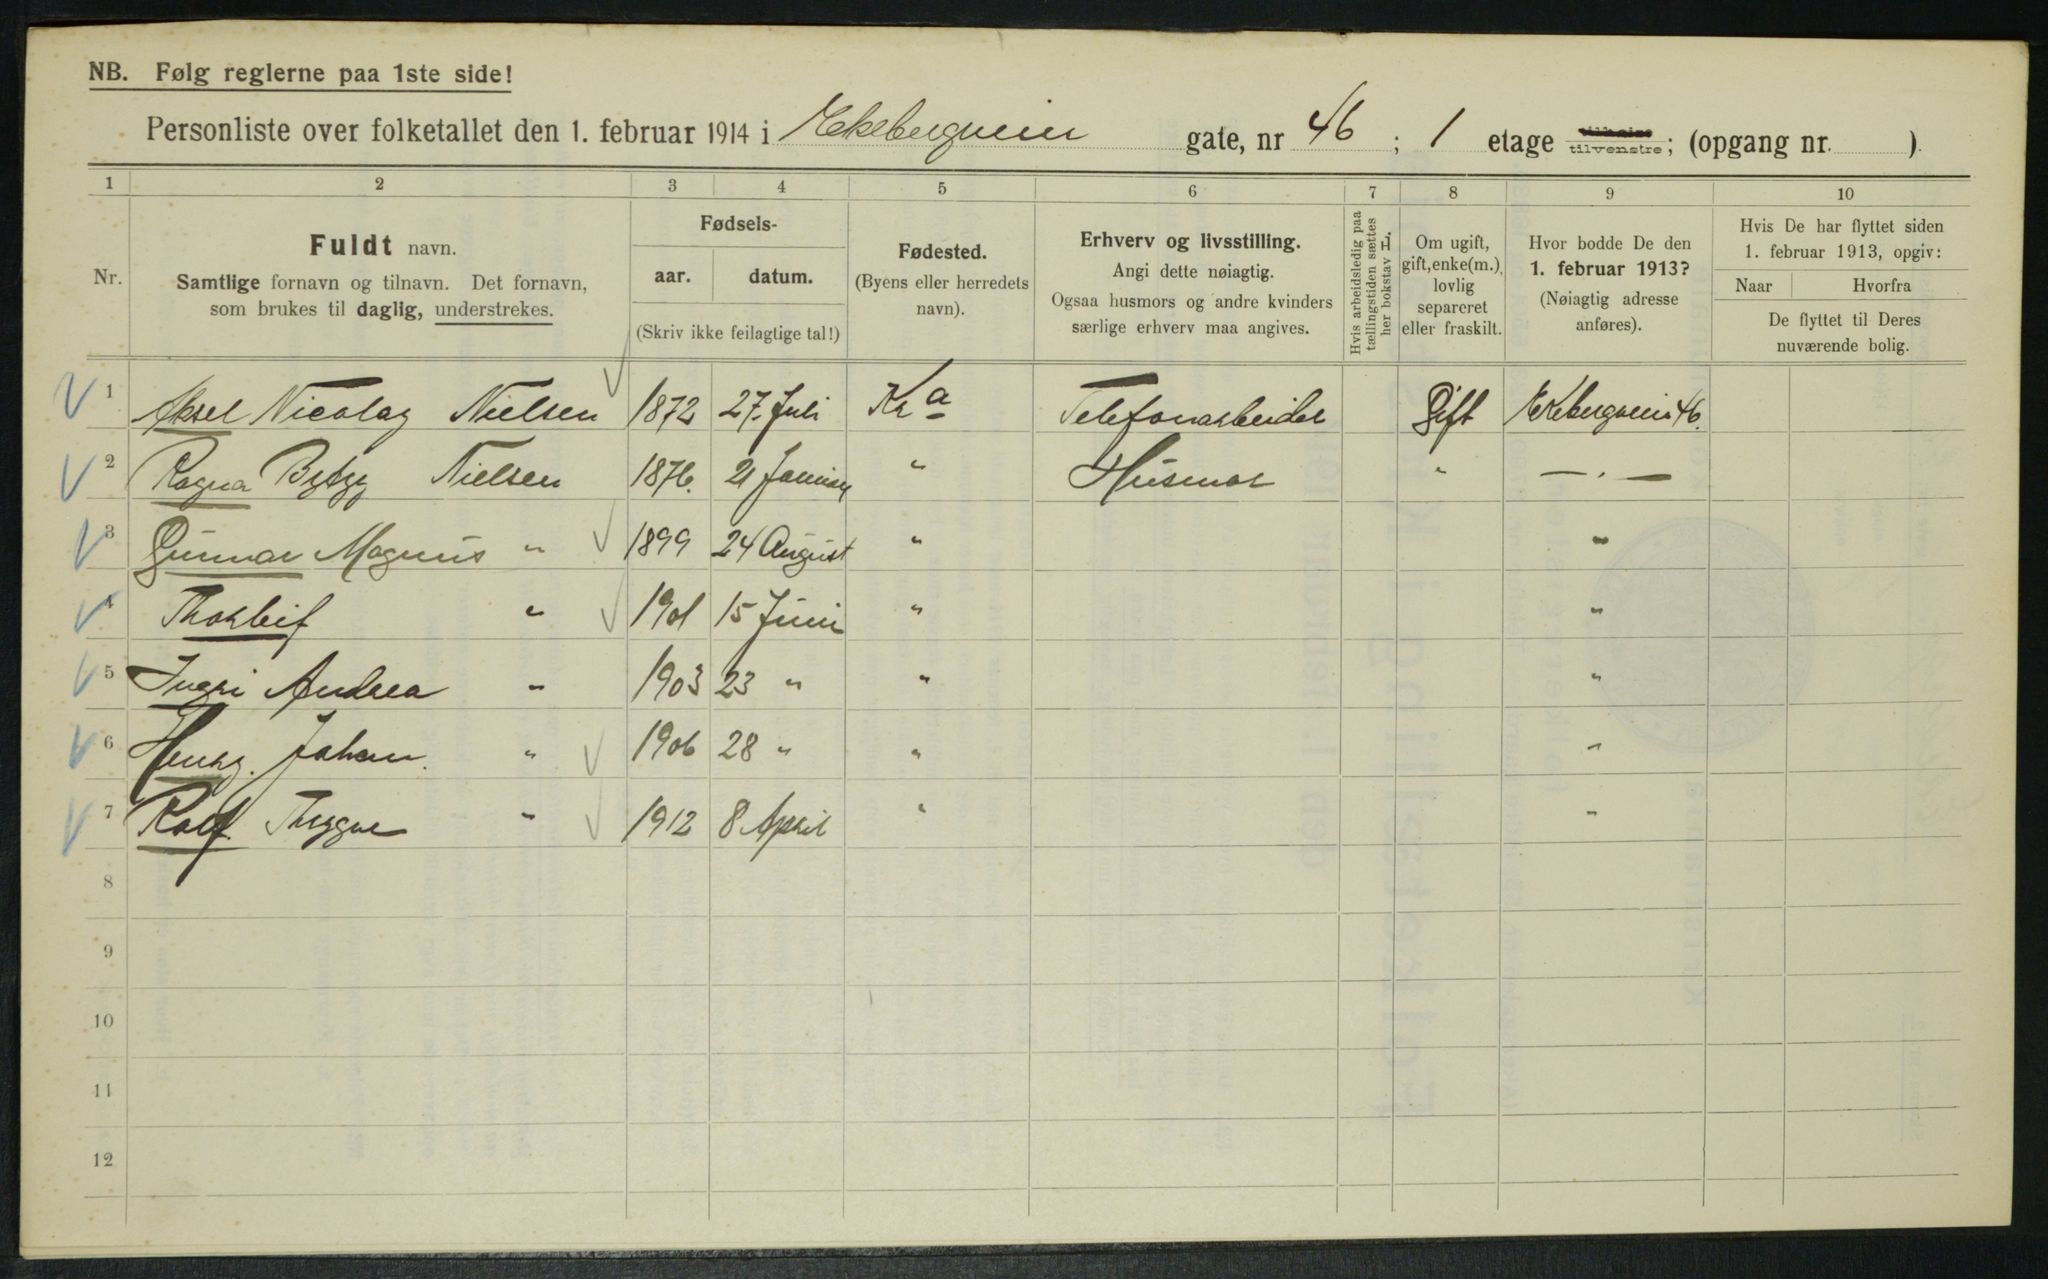 NB. Følg reglerne paa 1ste side!
Personliste over folketallet den 1. februar 1914 i Ekebergveien gate, nr 46 ; 1 etage tilvenstre; (opgang nr. )
1 2 3 4 5 6 7 8 9 10
Nr.
Fuldt navn.
Samtlige fornavn og tilnavn. Det fornavn,
som brukes til daglig, understrekes.
Fødsels-
aar. datum.
(Skriv ikke feilagtige tal!)
Fødested.
(Byens eller herredets
navn).
Erhverv og livsstilling.
Angi dette nøiagtig.
Ogsaa husmors og andre kvinders
særlige erhverv maa angives.
Hvis arbeidsledig paa
tællingstiden sættes
her bokstav H.
Om ugift,
gift, enke(m.),
lovlig
separeret
eller fraskilt.
Hvor bodde De den
1. februar 1913?
(Nøiagtig adresse
anføres).
Hvis De har flyttet siden
1. februar 1913, opgiv:
Naar Hvorfra
De flyttet til Deres
nuværende bolig.
1 Aksel Nicolay Nielsen 1872 27. Juli Kra Telefonarbeider Gift Ekebergveien 46.
2 Ragna Nielsen 1876. 21 Januar " Husmor " — . —
3 Gunnar Magnus " 1899 24 August " "
4 Thorleif " 1901 15 Juni " "
5 Ingri Andrea " 1903 23 " " "
6 Henry. Johan. " 1906 28 " " "
7 Rolf. Thygve " 1912 8 April " "
8
9
10
11
12